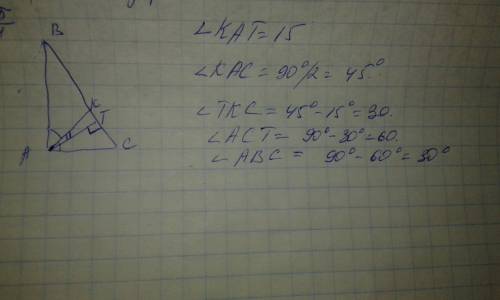 B
K
T
A
C
∠KAT=15
∠KAC = 90°/2 = 45°.
∠TKC = 45°-15°=30.
∠ACT = 90°-30°=60.
∠ABC = 90°-60°=30°